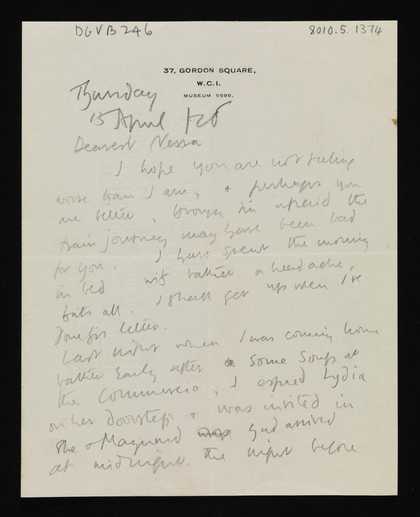 DGVB246
8010.5.1374
37, GORDON SQUARE,
W.C.1.
MUSEUM
Thursday
15 April
Dearest Nessa
I hope you are not feeling
worse than I am, & perhaps you
are better, though I'm afraid the
train journey may have been bad
for you. I have spent the morning
in bed with rather a headache,
that's all. I shall get up when I've
done this letter.
Last night when I was coming home
rather early after some soup at
the Commercio, I espied Lydia
on her doorstep & was invited in
She & Maynard had arrived
at midnight the night before